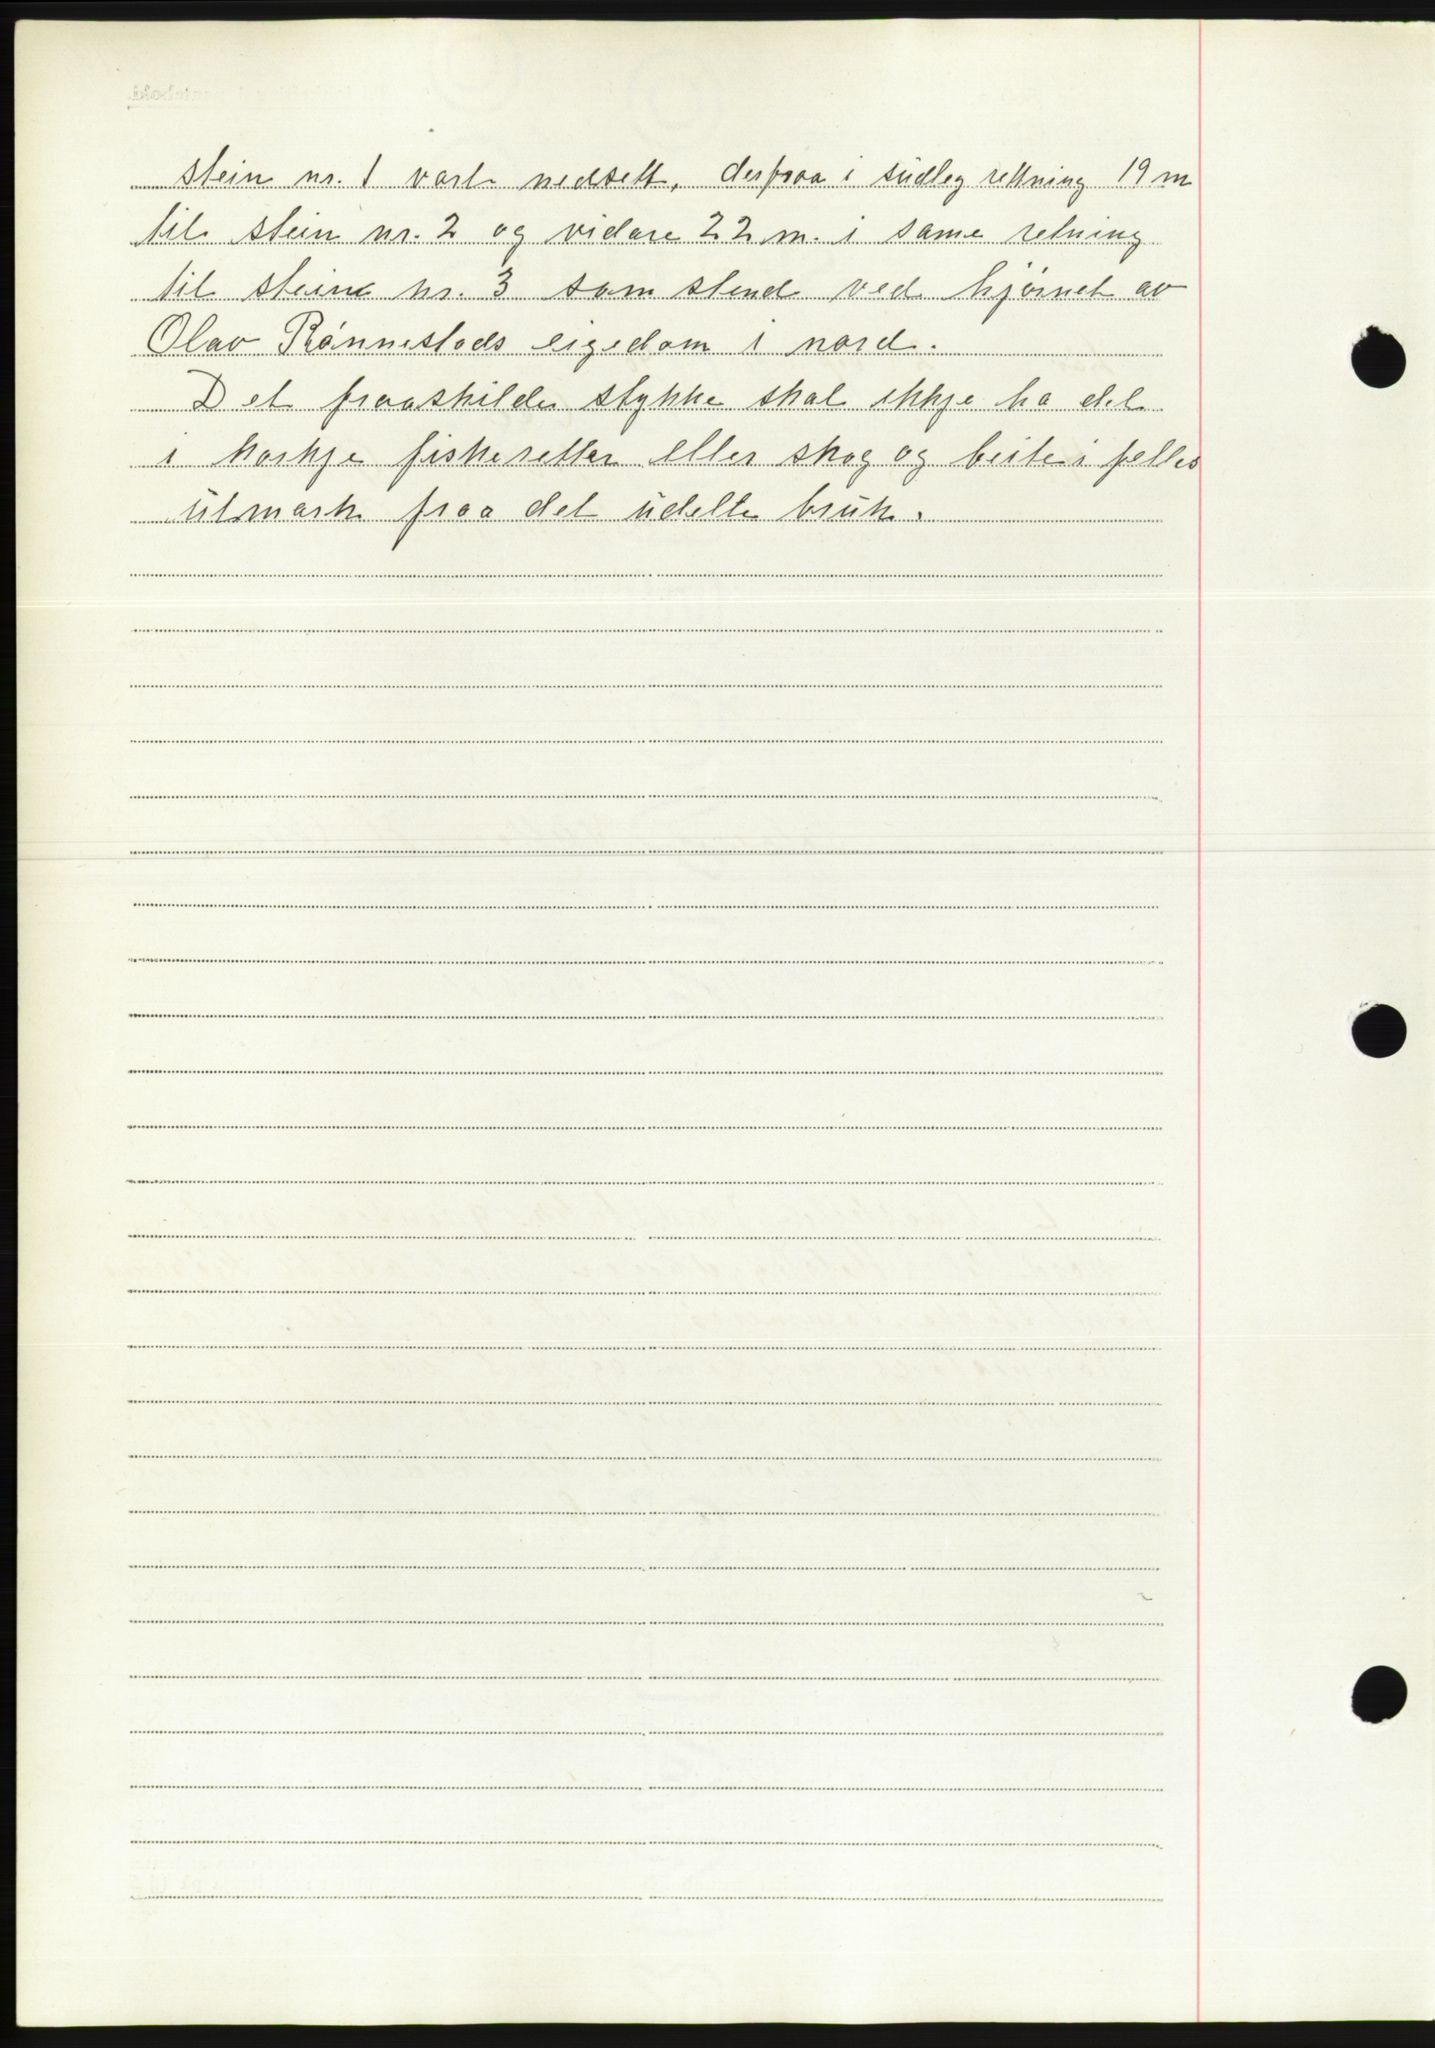 stein nr. 1 vart nedsett, derfraa i südleg rettning 19 m
til stein nr. 2 og vidare 22 m. i same retning
til stein nr. 3 som stend ved hjørnet av
Olav Rønnestads eigedom i nord.
Det fraaskilde stykke skal ikkje ha del
i korkje fiskeretter eller skog og beite i felles
ütmark fraa det üdelte brük.